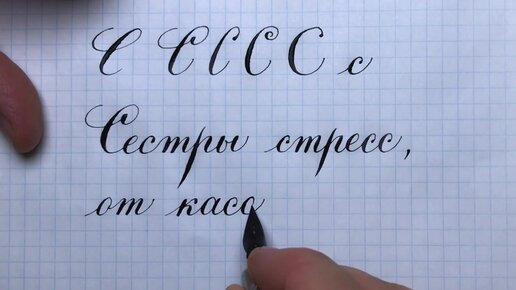 С С С С С с
Сестры стресс,
от касс